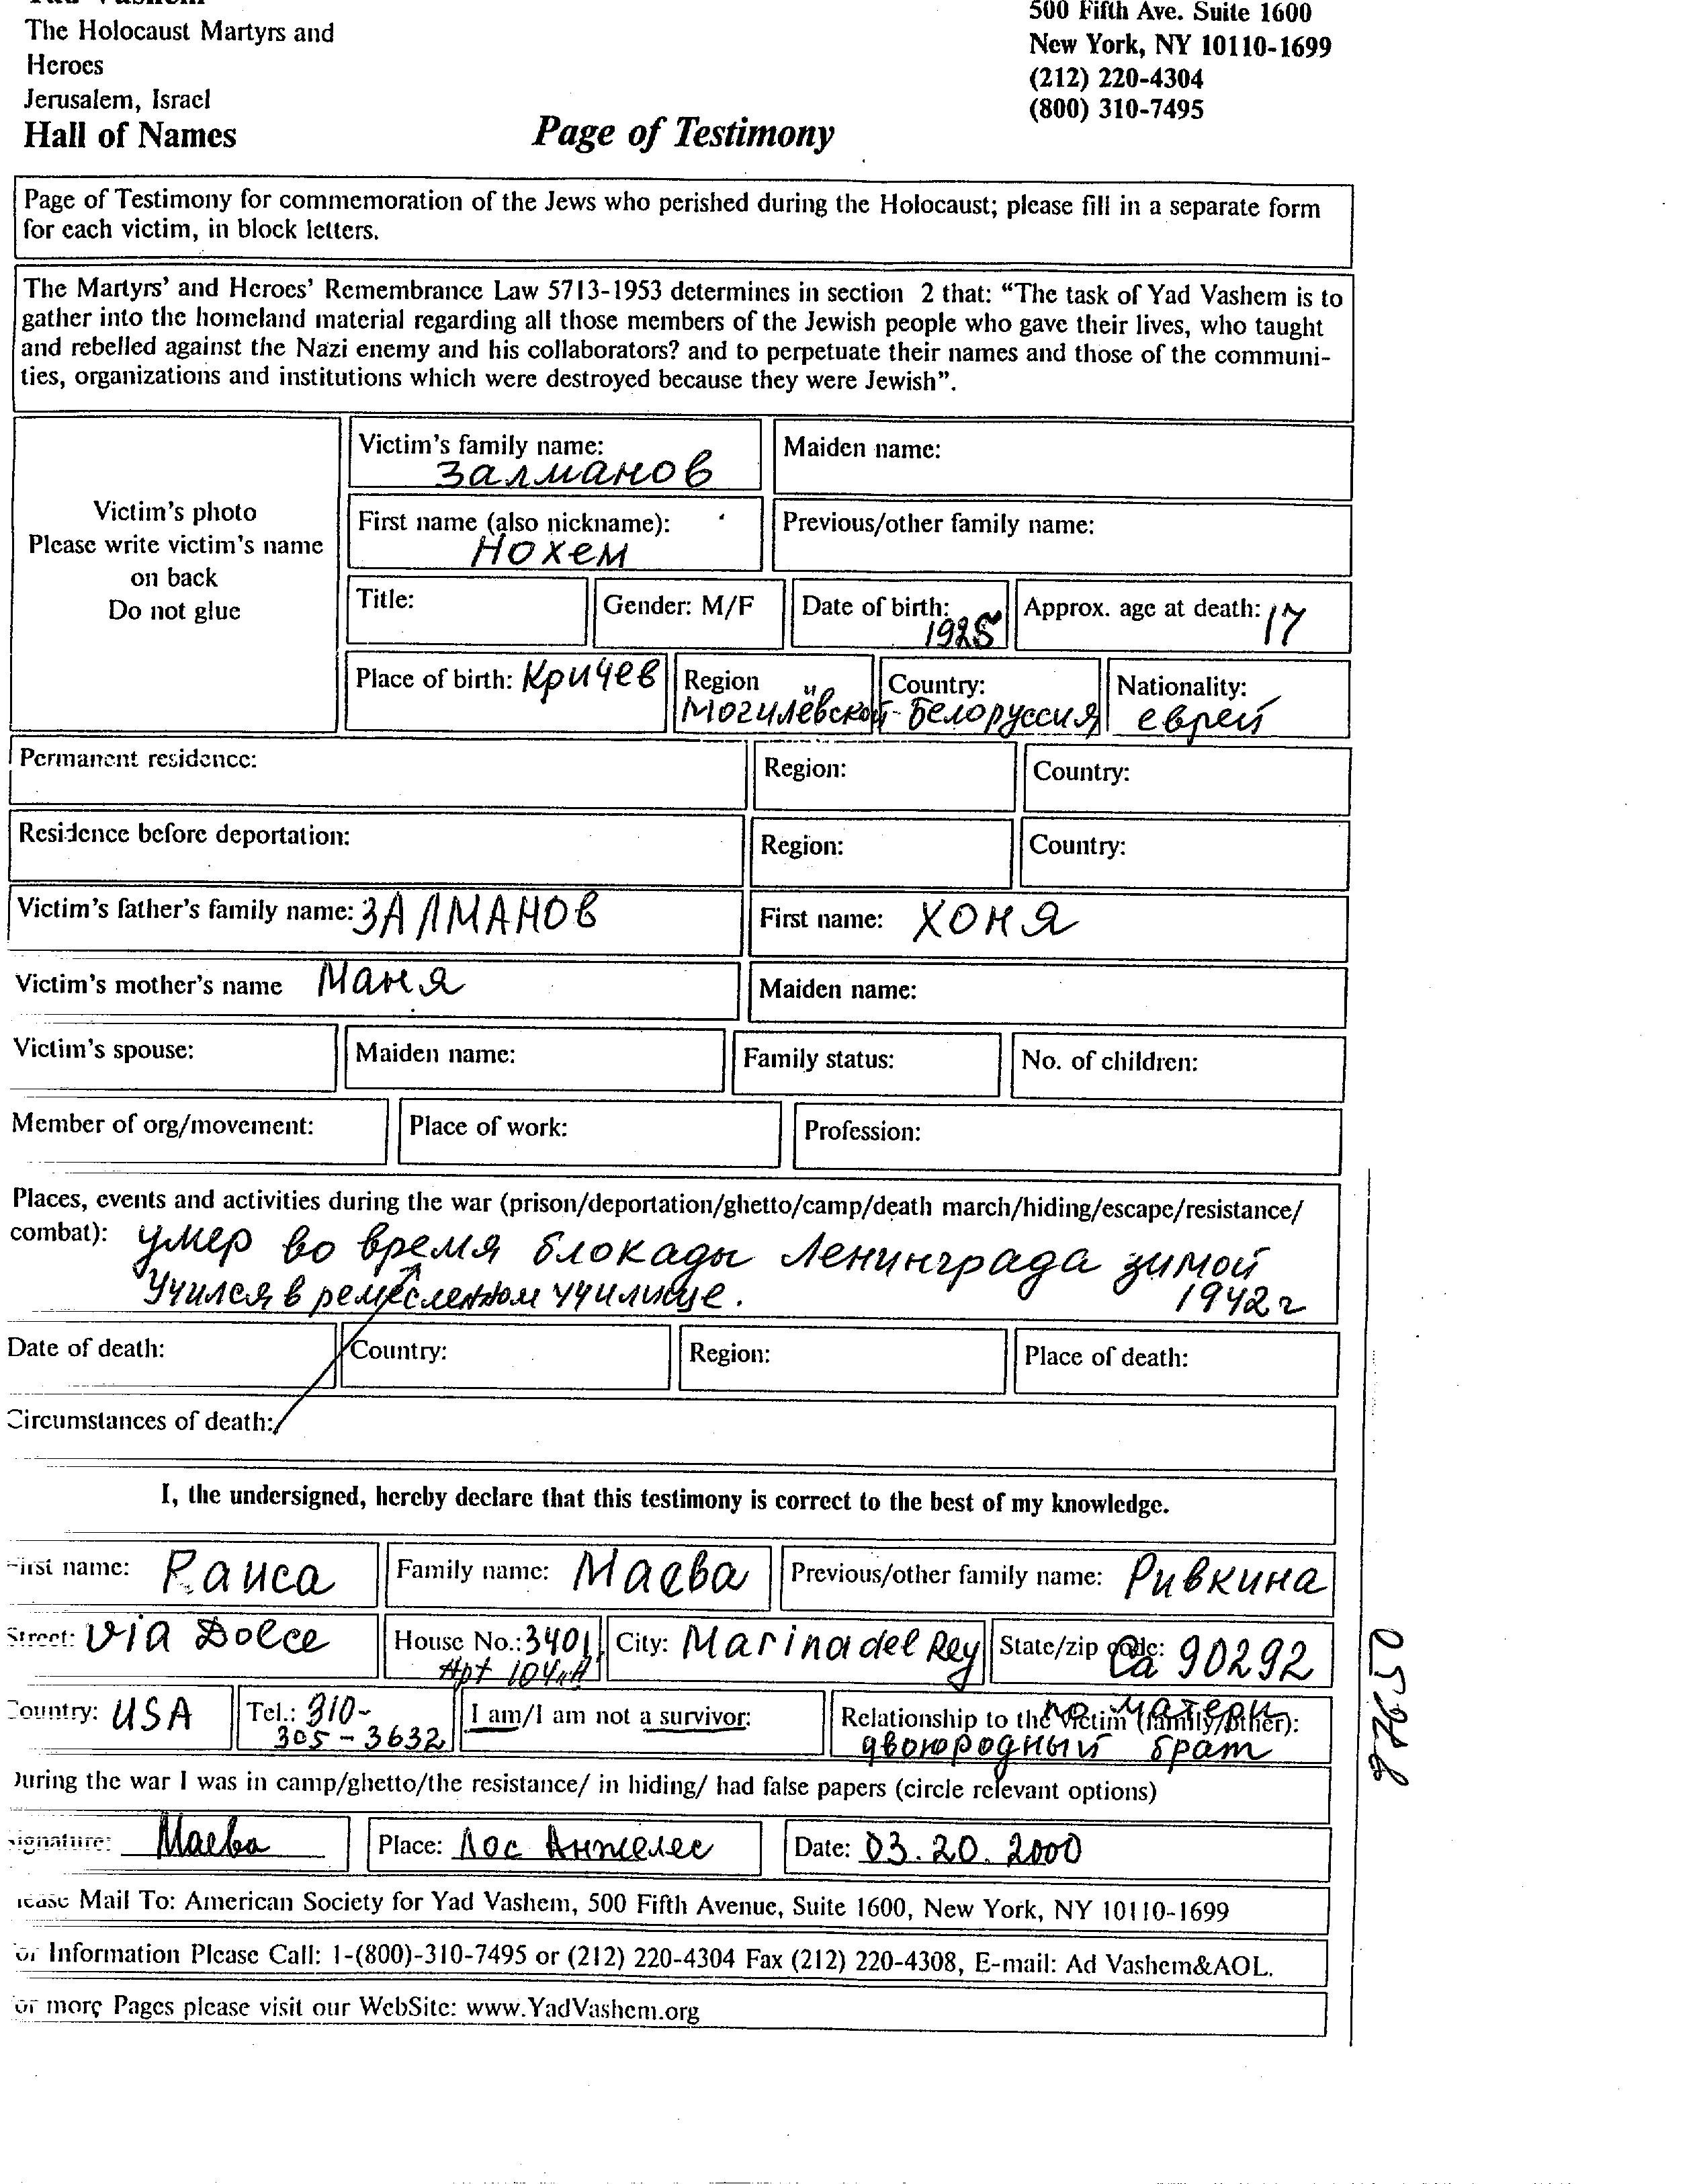 Yad Vashem
The Holocaust Martyrs and
Heroes
Jerusalem, Israel
Hall of Names
Page of Testimony
500 Fifth Ave. Suite 1600
New York, NY 10110-1699
(212) 220-4304
(800) 310-7495
Page of Testimony for commemoration of the Jews who perished during the Holocaust; please fill in a separate form
for each victim, in block letters.
The Martyrs' and Heroes' Remembrance Law 5713-1953 determines in section 2 that: "The task of Yad Vashem is to
gather into the homeland material regarding all those members of the Jewish people who gave their lives, who taught
and rebelled against the Nazi enemy and his collaborators? and to perpetuate their names and those of the communi-
ties, organizations and institutions which were destroyed because they were Jewish".
Victim's photo
Please write victim's name
on back
Do not glue
Victim's family name: Залманов
Maiden name:
First name (also nickname): Нохем
Previous/other family name:
Title:
Gender: M/F
Date of birth: 1925
Approx. age at death: 17
Place of birth: Кричев
Region Могилёвской
Country: Белоруссия
Nationality: еврей
Permanent residence:
Region:
Country:
Residence before deportation:
Region:
Country:
Victim's father's family name: ЗАЛМАНОВ
First name: ХОНЯ
Victim's mother's name Маня
Maiden name:
Victim's spouse:
Maiden name:
Family status:
No. of children:
Member of org/movement:
Place of work:
Profession:
Places, events and activities during the war (prison/deportation/ghetto/camp/death march/hiding/escape/resistance/
combat): умер во время блокады Ленинграда зимой
Учился в ремесленном училище. 1942 г
Date of death:
Country:
Region:
Place of death:
Circumstances of death:
I, the undersigned, hereby declare that this testimony is correct to the best of my knowledge.
First name: Раиса
Family name: Маева
Previous/other family name: Ривкина
Street: Via Dolce
House No.: 3401
Apt 104
City: Marina del Rey
State/zip code: Ca 90292
Country: USA
Tel.: 310-
305-3632
I am/I am not a survivor:
Relationship to the victim (family/other): по матери
двоюродный брат
During the war I was in camp/ghetto/the resistance/ in hiding/ had false papers (circle relevant options)
Signature: Маева
Place: Лос Анжелес
Date: 03.20.2000
Please Mail To: American Society for Yad Vashem, 500 Fifth Avenue, Suite 1600, New York, NY 10110-1699
For Information Please Call: 1-(800)-310-7495 or (212) 220-4304 Fax (212) 220-4308, E-mail: Ad Vashem&AOL.
For more Pages please visit our WebSite: www.YadVashem.org